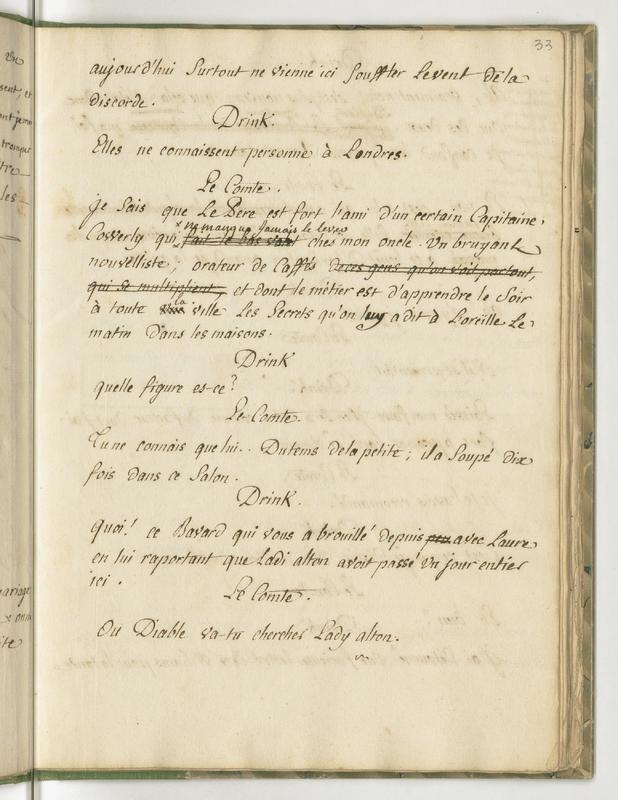 33
aujourd'hui Surtout ne vienne ici Souffler Levent dela
discorde.
Drink.
Elles ne connaissent personne à Londres.
Le Comte.
je Sais que Le Pere est fort L'ami d'un certain Capitaine
ne manque jamais le lever
Cowerly qui fait le bas valet ches mon oncle. Un bruyant
nouvelliste; orateur de Caffés de ces gens qu'on voit partout,
qui se multiplient, et dont le métier est d'apprendre le Soir
la
à toute ville Les Secrets qu'on luy a dit à L'oreille Le
matin Dans les maisons.
Drink
quelle figure es-ce?
Le Comte.
Tu ne connais que lui.. Dutems dela petite; il a Soupé dix
fois dans ce Salon.
Drink.
quoi! ce Bavard qui vous a brouillé depuis peu avec Laure
en lui raportant que Ladi alton avoit passé Un jour entier
ici.
Le Comte.
Où Diable va-tu chercher Lady alton.